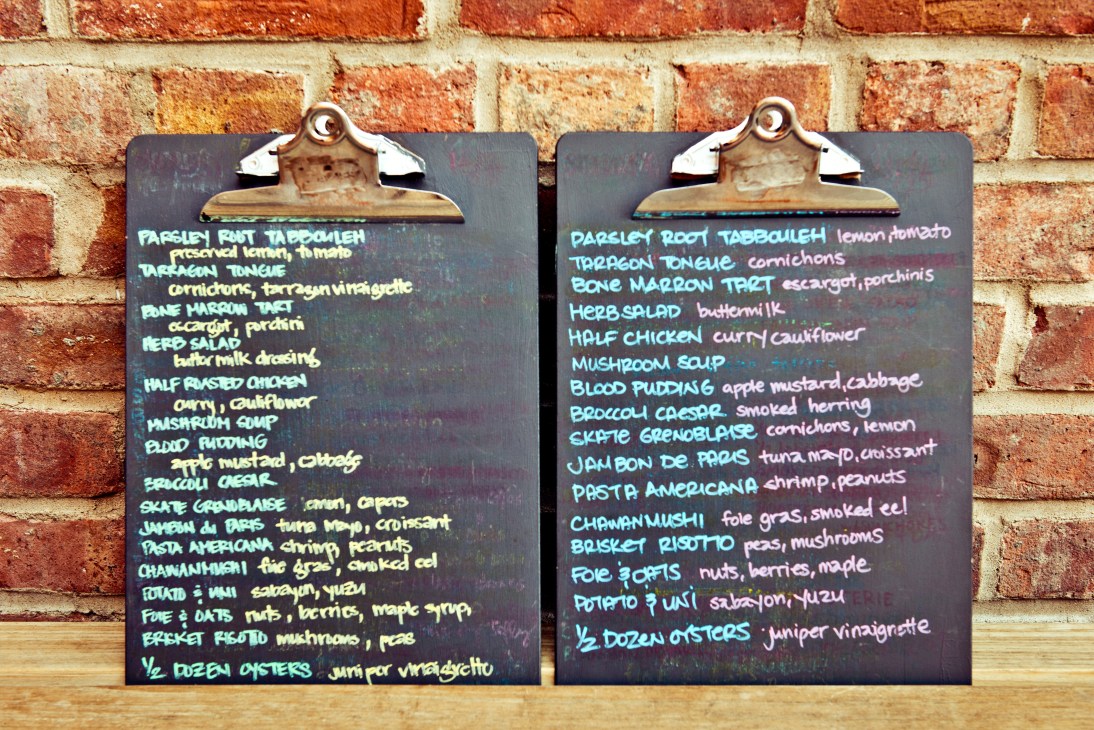 PARSLEY ROOT TABBOULEH
preserved lemon, tomato
TARRAGON TONGUE
cornichons, tarragon vinaigrette
BONE MARROW TART
escargot, porchini
HERB SALAD
butter milk dressing
HALF ROASTED CHICKEN
curry, cauliflower
MUSHROOM SOUP
BLOOD PUDDING
apple mustard, cabbage
BROCCOLI CAESAR
SKATE GRENOBLAISE lemon, capers
JAMBON de PARIS tuna mayo, croissant
PASTA AMERICANA shrimp, peanuts
CHAWANMUSHI foie gras, smoked eel
POTATO & UNI sabayon, yuzu
FOIE & OATS nuts, berries, maple syrup,
BRISKET RISOTTO mushrooms, peas
1/2 DOZEN OYSTERS juniper vinaigrette
PARSLEY ROOT TABBOULEH lemon, tomato
TARAGON TONGUE cornichons
BONE MARROW TART escargot, porchinis
HERB SALAD buttermilk
HALF CHICKEN curry cauliflower
MUSHROOM SOUP
BLOOD PUDDING apple mustard, cabbage
BROCCOLI CAESAR smoked herring
SKATE GRENOBLAISE cornichons, lemon
JAMBON DE PARIS tuna mayo, croissant
PASTA AMERICANA shrimp, peanuts
CHAWANMUSHI foie gras, smoked eel
BRISKET RISOTTO peas, mushrooms
FOIE & OATS nuts, berries, maple
POTATO & UNI sabayon, yuzu
1/2 DOZEN OYSTERS juniper vinaigrette